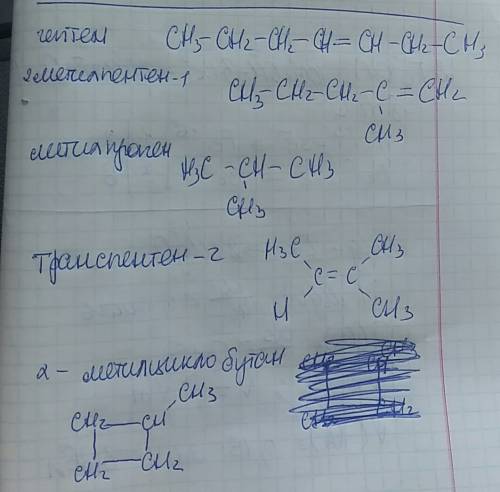 гептен CH₃-CH₂-CH₂-CH=CH-CH₂-CH₃
2метилпентен-1 CH₃-CH₂-CH₂-C=CH₂
CH₃
метилпропен H₃C-CH-CH₃
CH₃
Транспентен-2 H₃C CH₃
C=C
H CH₃
2-метилциклобутан
CH₃
CH₂-CH
CH₂-CH₂